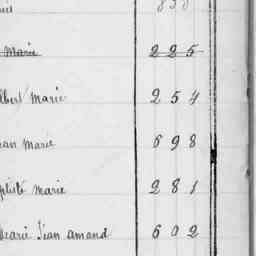 Marie 225
lbert Marie 254
ean Marie 698
ptiste Marie 281
Marie Jean amand 602